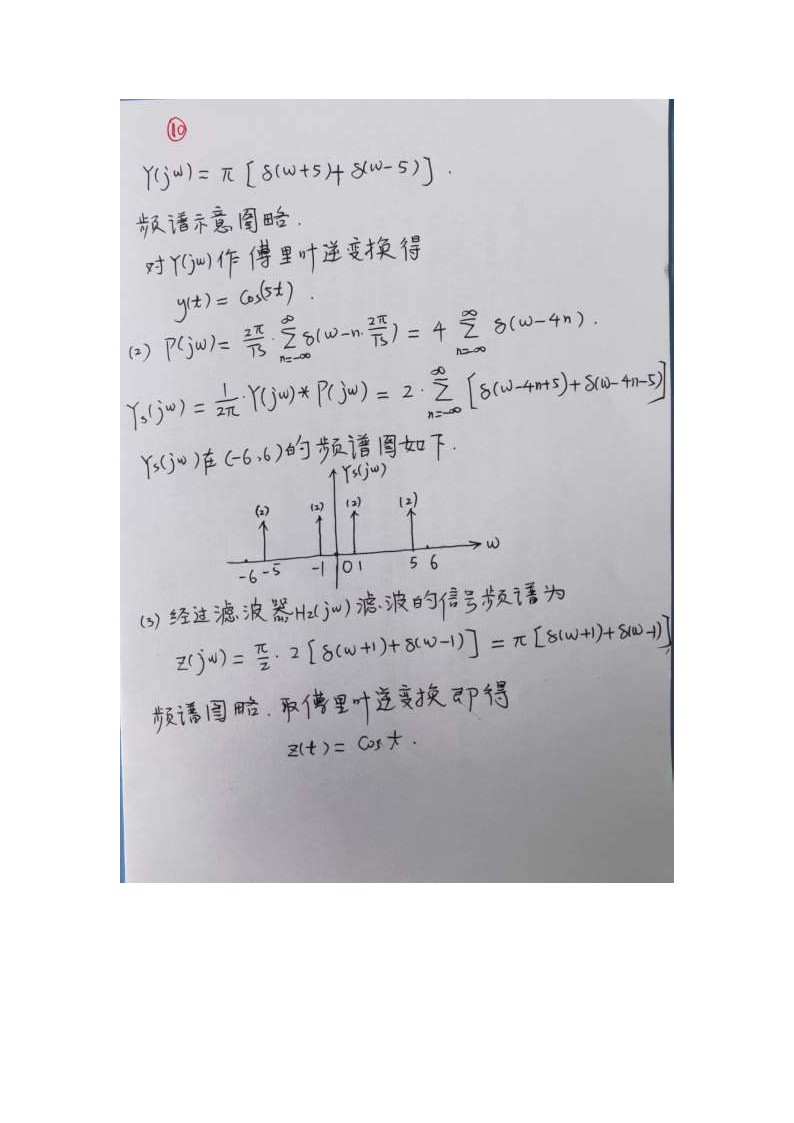 ⑩
Y(jω) = π [δ(ω+5)+ δ(ω-5)].
频谱示意图略.
对Y(jω)作傅里叶逆变换得
y(t) = cos(5t).
(2) P(jω) = 2π/Ts · ∑_{n=-∞}^{∞} δ(ω-n·2π/Ts) = 4 ∑_{n=-∞}^{∞} δ(ω-4n).
Ys(jω) = 1/2π · Y(jω) * P(jω) = 2 · ∑_{n=-∞}^{∞} [δ(ω-4n+5)+δ(ω-4n-5)]
Ys(jω)在(-6,6)的频谱图如下.
Ys(jω)
(2) (2) (2) (2)
-6 -5 -1 0 1 5 6 ω
(3) 经过滤波器H2(jω)滤波的信号频谱为
Z(jω) = π/2 · 2 [δ(ω+1)+δ(ω-1)] = π [δ(ω+1)+δ(ω-1)]
频谱图略. 取傅里叶逆变换即得
z(t) = cos t.